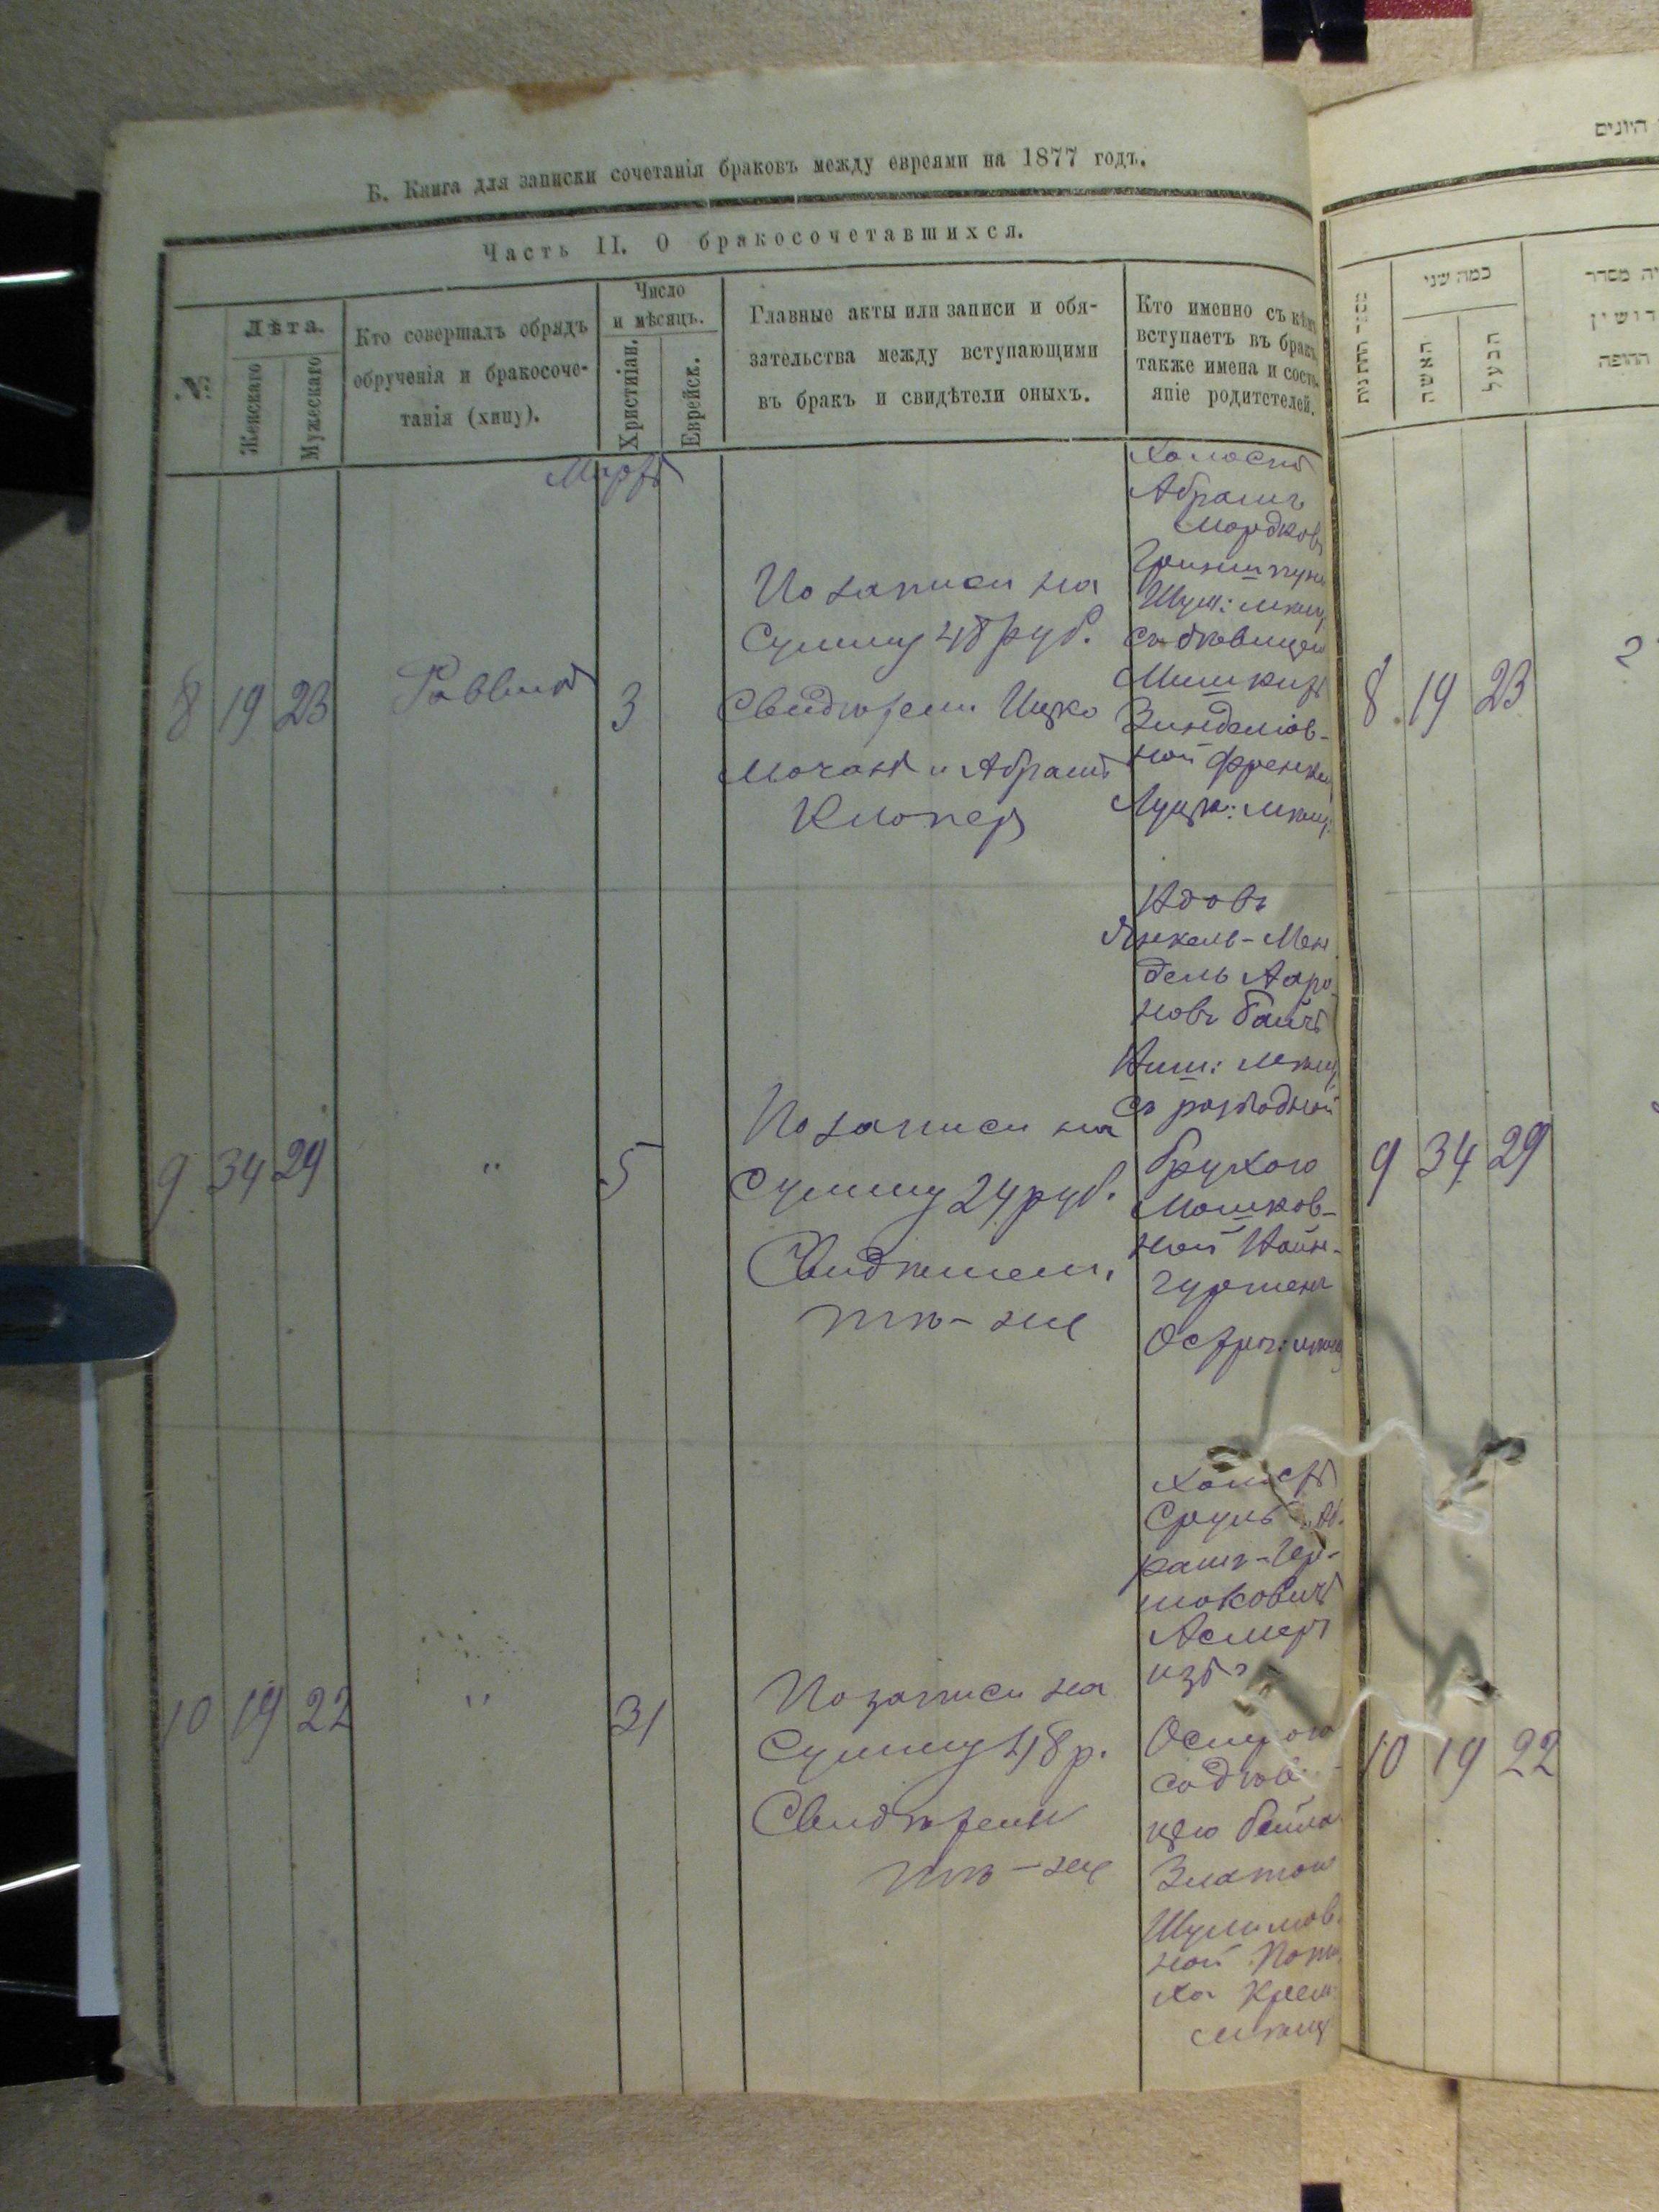 Б. Книга для записки сочетанія браковъ между евреями на 1877 годъ.
Часть II. О бракосочетавшихся.
№
Лѣта.
Женскаго
Мужескаго
Кто совершалъ обрядъ
обрученія и бракосоче-
танія (хипу).
Число
и мѣсяцъ.
Христіан.
Еврейск.
Главные акты или записи и обя-
зательства между вступающими
въ бракъ и свидѣтели оныхъ.
Кто именно съ кѣмъ
вступаетъ въ бракъ,
также имена и состо-
яніе родителей.
Мартъ
8 19 23
Раввинъ
3
По записи на
Сумму 48 руб.
Свидѣтели Ицко
Мочан и Абрамъ
Клопер
Холостъ
Абрамъ
Мордков
Шум: мѣщ
съ дѣвицей
Зинделіов-
ной Френкел
Луцк: мѣщ:
9 34 29
"
5
По записи на
Сумму 24 руб.
Свидѣтели,
тѣ-же
Вдовъ
Янкель-Мен
дельАаро
новъ
мѣщ
съ разводной
Брухою
Мошков-
ной Вайн-
гуртен
Острог: мѣщ
10 19 22
"
31
По записи на
Сумму 48 р.
Свидѣтели
тѣ-же
Холостъ
Сруль Аб.
рамъ-Гер-
шковичъ
изъ
съ дѣви
цею Бейла
Златою
Шулимов
ной
ха Крем:
мѣщ
היונים
כמה שני
האשה
הבעל
8 19 23
9 34 29
10 19 22